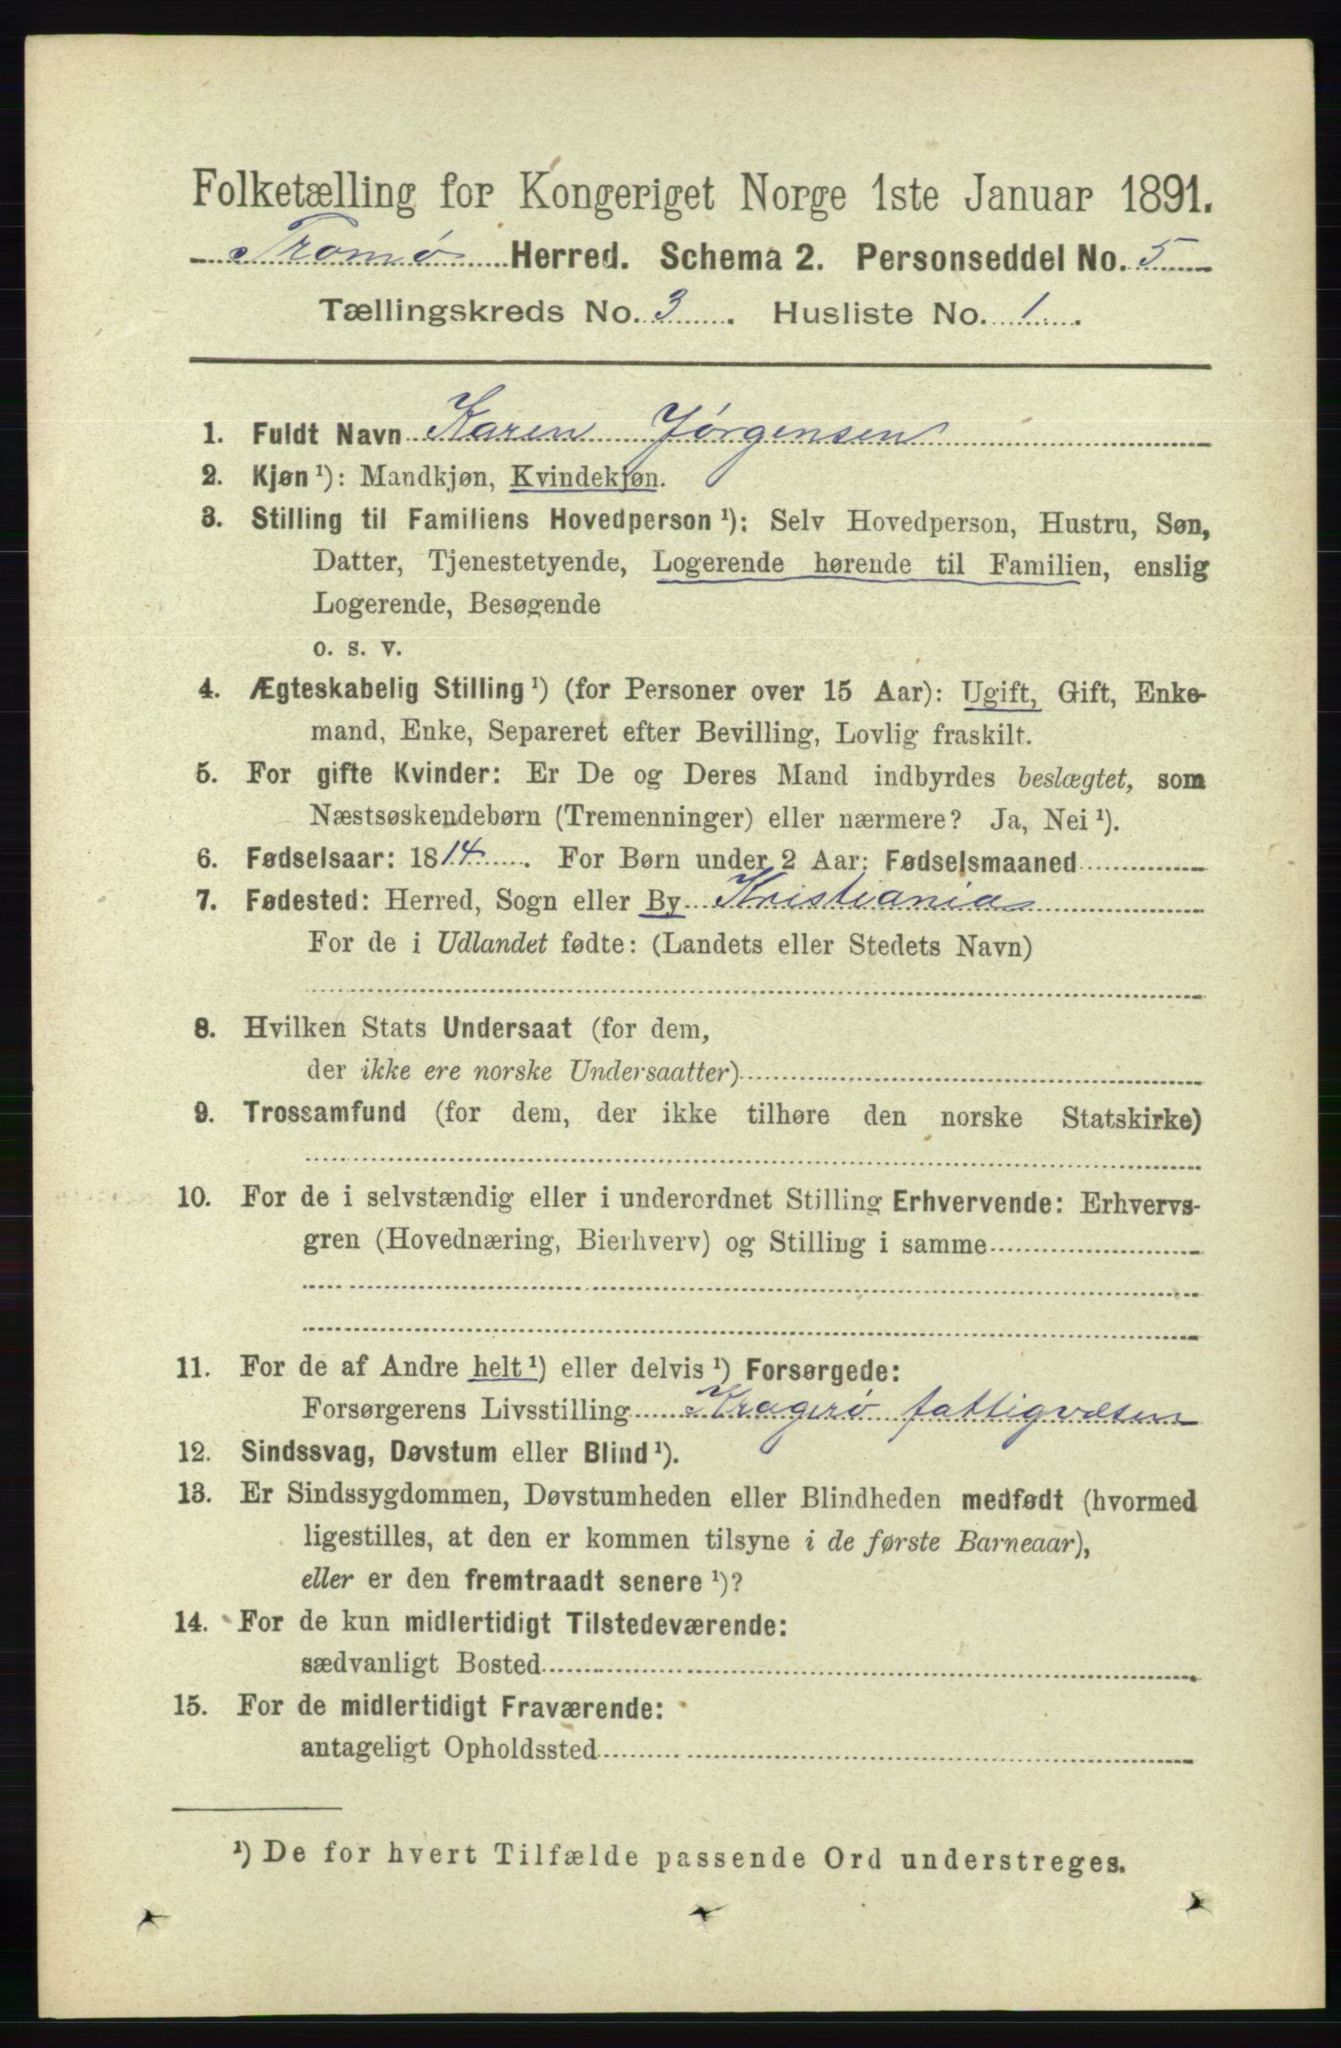 Folketælling for Kongeriget Norge 1ste Januar 1891.
Tromø Herred. Schema 2. Personseddel No. 5
Tællingskreds No. 3. Husliste No. 1.
1. Fuldt Navn Karen Jørgensen
2. Kjøn ¹): Mandkjøn, Kvindekjøn.
3. Stilling til Familiens Hovedperson ¹): Selv Hovedperson, Hustru, Søn,
Datter, Tjenestetyende, Logerende hørende til Familien, enslig
Logerende, Besøgende
o. s. v.
4. Ægteskabelig Stilling ¹) (for Personer over 15 Aar): Ugift, Gift, Enke-
mand, Enke, Separeret efter Bevilling, Lovlig fraskilt.
5. For gifte Kvinder: Er De og Deres Mand indbyrdes beslægtet, som
Næstsøskendebørn (Tremenninger) eller nærmere? Ja, Nei ¹).
6. Fødselsaar: 1814. For Børn under 2 Aar: Fødselsmaaned
7. Fødested: Herred, Sogn eller By Kristiania
For de i Udlandet fødte: (Landets eller Stedets Navn)
8. Hvilken Stats Undersaat (for dem,
der ikke ere norske Undersaatter)
9. Trossamfund (for dem, der ikke tilhøre den norske Statskirke)
10. For de i selvstændig eller i underordnet Stilling Erhvervende: Erhvervs-
gren (Hovednæring, Bierhverv) og Stilling i samme
11. For de af Andre helt ¹) eller delvis ¹) Forsørgede:
Forsørgerens Livsstilling Kragerö fattigvæsen
12. Sindssvag, Døvstum eller Blind ¹).
13. Er Sindssygdommen, Døvstumheden eller Blindheden medfødt (hvormed
ligestilles, at den er kommen tilsyne i de første Barneaar),
eller er den fremtraadt senere ¹)?
14. For de kun midlertidigt Tilstedeværende:
sædvanligt Bosted
15. For de midlertidigt Fraværende:
antageligt Opholdssted
¹) De for hvert Tilfælde passende Ord understreges.